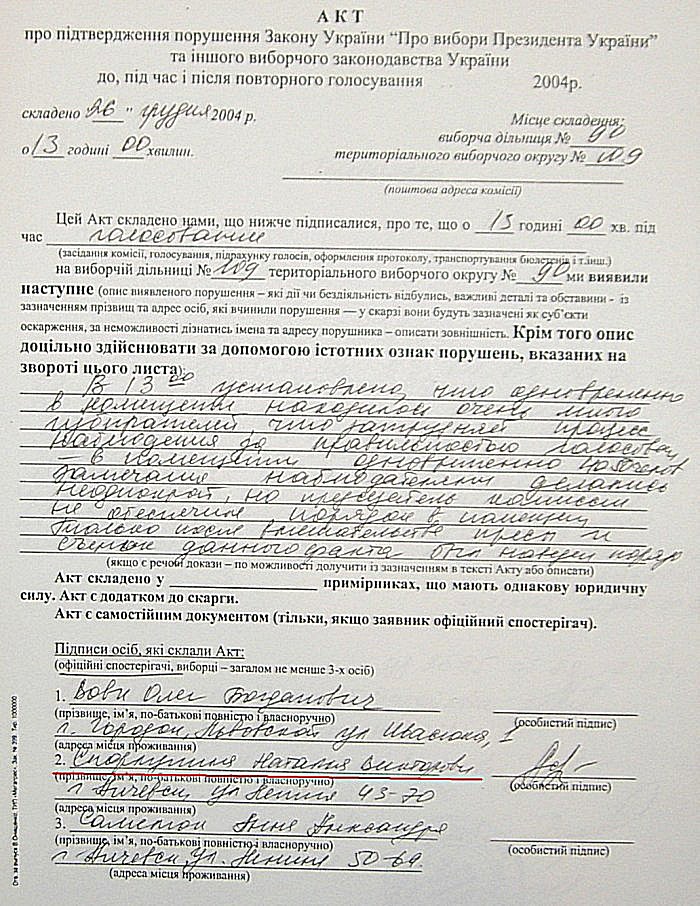 АКТ
про підтвердження порушення Закону України “Про вибори Президента України”
та іншого виборчого законодавства України
до, під час і після повторного голосування 2004р.
складено 26 " грудня 2004 р.
Місце складення:
виборча дільниця № 90
о 13 годині 00 хвилин.
територіального виборчого округу № 109
(поштова адреса комісії)
Цей Акт складено нами, що нижче підписалися, про те, що о 13 годині 00 хв. під
час голосования
(засідання комісії, голосування, підрахунку голосів, оформлення протоколу, транспортування бюлетенів і т.інш.)
на виборчій дільниці № 109 територіального виборчого округу № 90 ми виявили
наступне (опис виявленого порушення – які дії чи бездіяльність відбулись, важливі деталі та обставини - із
зазначенням прізвищ та адрес осіб, які вчинили порушення — у скарзі вони будуть зазначені як суб’єкти
оскарження, за неможливості дізнатись імена та адресу порушника – описати зовнішність. Крім того опис
доцільно здійснювати за допомогою істотних ознак порушень, вказаних на
звороті цього листа):
В 13 00 установлено, что одновременно
в помещении находилось очень много
избирателей, что затрудняет процесс
наблюдения за правильностью голосован
– в помещении одновременно человек
Замечания наблюдателями делались
неоднократ, но председатель комиссии
не обеспечил порядок в помещен
только после вмешательства прессы и
съемок данного факта был наведен поряд
(якщо є речові докази – по можливості долучити із зазначенням в тексті Акту або описати)
Акт складено у примірниках, що мають однакову юридичну
силу. Акт є додатком до скарги.
Акт є самостійним документом (тільки, якщо заявник офіційний спостерігач).
Підписи осіб, які склали Акт:
(офіційні спостерігачі, виборці – загалом не менше 3-х осіб)
1. Вовк Олег Богданович
(прізвище, ім’я, по-батькові повністю і власноручно) (особистий підпис)
г. Городок, Львовской ул Ивасюка, 1
(адреса місця проживання)
2. Наталия Викторовн
(прізвище, ім’я, по-батькові повністю і власноручно) (особистий підпис)
г. Алчевск ул Ленина 43-70
(адреса місця проживання)
3. Анна Александр
(прізвище, ім’я, по-батькові повністю і власноручно) (особистий підпис)
г. Алчевск, ул. Ленина 50-69
(адреса місця проживання)